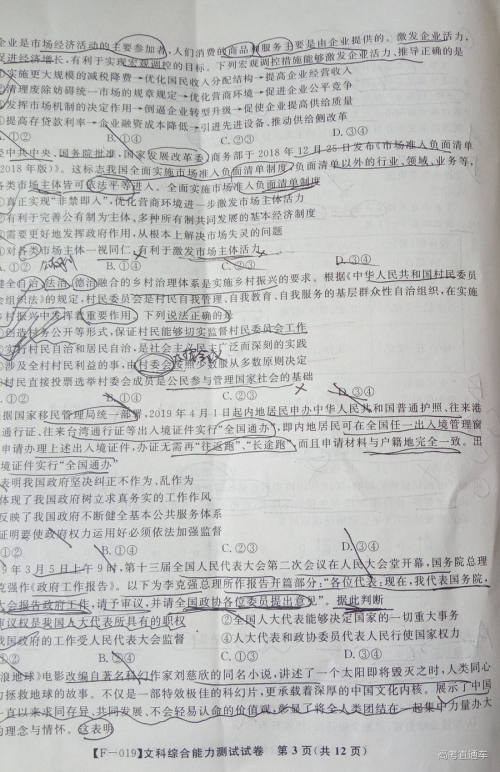 企业是市场经济活动的主要参加者,人们消费的商品和服务主要是由企业提供的。激发企业活力,
促进经济增长,有利于实现宏观调控的目标。下列宏观调控措施能够激发企业活力、推导正确的是
①实施更大规模的减税降费→优化国民收入分配结构→提高企业经营收入
②清理废除妨碍统一市场的规章规定→优化营商环境→促进企业公平竞争
③发挥市场机制的决定作用→倒逼企业转型升级→促使企业提高供给质量
④提高存贷款利率→企业融资成本降低→引进先进设备、推动供给侧改革
A.①② B.①④ C.②③ D.③④
经中共中央、国务院批准,国家发展改革委、商务部于 2018 年 12 月 25 日发布《市场准入负面清单
(2018 年版)》。这标志我国全面实施市场准入负面清单制度,负面清单以外的行业、领域、业务等,
各类市场主体皆可依法平等进入。全面实施市场准入负面清单制度
①真正实现“非禁即入”,优化营商环境进一步激发市场主体活力
②有利于完善公有制为主体、多种所有制共同发展的基本经济制度
③需要更好地发挥政府作用,从根本上解决市场失灵的问题
④对各类市场主体一视同仁,有利于激发市场主体活力
A.①② B.①④ C.②③ D.③④
健全自治、法治、德治融合的乡村治理体系是实施乡村振兴的要求。根据《中华人民共和国村民委员
会组织法》的规定,村民委员会是村民自我管理、自我教育、自我服务的基层群众性自治组织,在实施
乡村振兴中发挥着重要作用。下列说法正确的是
①创造村务公开等形式,保证村民能够切实监督村民委员会工作
②实行村民自治和居民自治,是社会主义民主广泛而深刻的实践
③涉及全村村民利益的事,由村委会按照少数服从多数原则决定
④村民直接投票选举村委会成员是公民参与管理国家社会的基础
①② B.①④ C.②③ D.③④
根据国家移民管理局统一部署,2019 年 4 月 1 日起内地居民申办中华人民共和国普通护照、往来港
通行证、往来台湾通行证等出入境证件实行“全国通办”,即内地居民可在全国任一出入境管理窗
申请办理上述出入境证件,办证无需再“往返跑”、“长途跑”,而且申请材料与户籍地完全一致。出
境证件实行“全国通办”
表明我国政府坚决纠正不作为、乱作为
体现了我国政府树立求真务实的工作作风
反映了我国政府不断健全基本公共服务体系
证明要使政府权力运用好必须依法加强监督
①② B.①④ C.②③ D.③④
9 年 3 月 5 日上午 9 时,第十三届全国人民代表大会第二次会议在人民大会堂开幕,国务院总理
克强作《政府工作报告》。以下为李克强总理所作报告开篇部分:“各位代表:现在,我代表国务院,
大会报告政府工作,请予审议,并请全国政协各位委员提出意见”。据此判断
审议权是我国人大代表所具有的职权 ②全国人大代表能够决定国家的一切重大事务
我国政府的工作受人民代表大会监督 ④人大代表和政协委员代表人民行使国家权力
①② B.②④ C.①③ D.③④
浪地球》电影改编自著名科幻作家刘慈欣的同名小说,讲述了一个太阳即将毁灭之时,人类同心
力拯救地球的故事。不仅是一部特效极佳的科幻片,更承载着深厚的中国文化内核。展示了中国
一直以来求同存异、共同发展、不会轻易认命的价值观,彰显了将全人类团结在一起集中力量办大
的理念与情怀。这表明
【F—019】文科综合能力测试试卷 第 3 页(共 12 页)
高考直通车